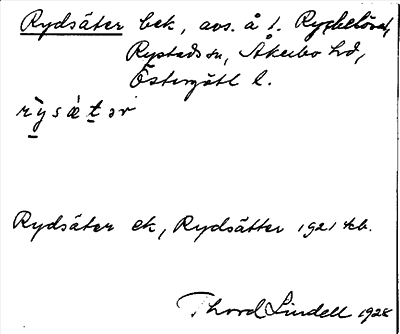 Rydsäter bek, avs. å l.
Rystads sn, Åkerbo hd,
Östergötl l.
rỳsǽtər
Rydsäter ek, Rydsätter 1921 kb.
Thord Lindell 1928